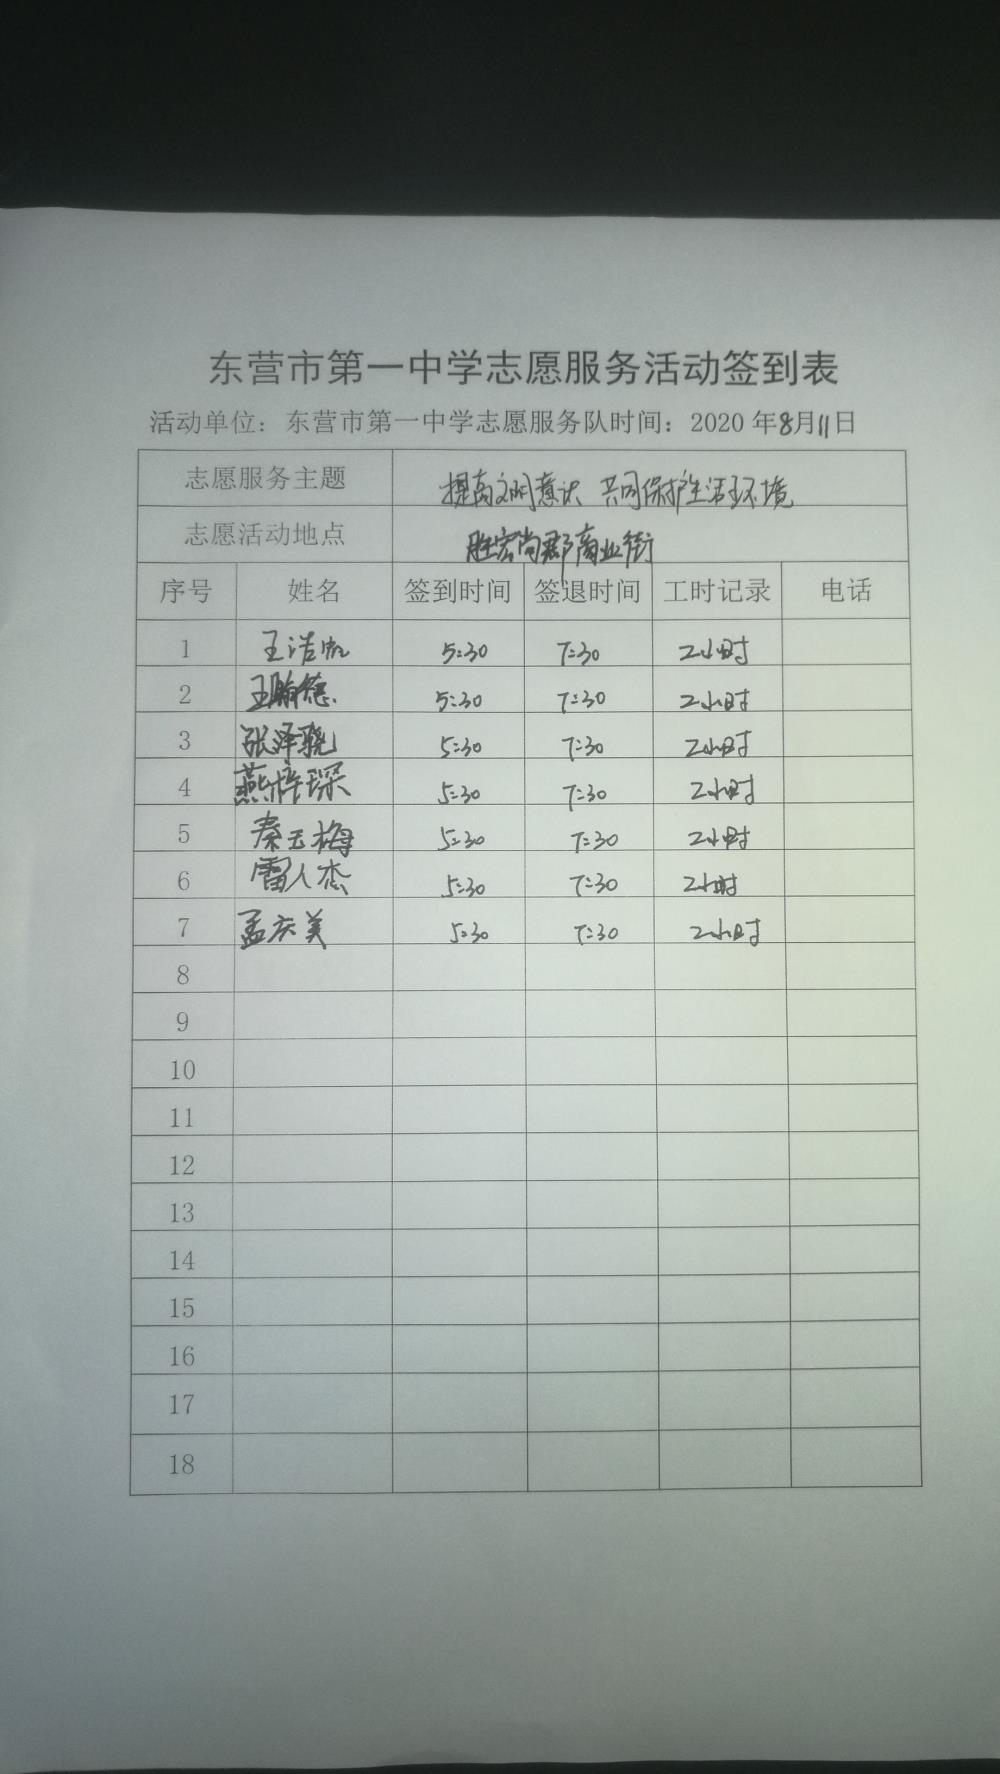 东营市第一中学志愿服务活动签到表
活动单位：东营市第一中学志愿服务队时间：2020 年8月11日
志愿服务主题 提高文明意识 共同保护生活环境
志愿活动地点 胜宏尚郡商业街
序号 姓名 签到时间 签退时间 工时记录 电话
1 王浩帆 5:30 7:30 2小时
2 王瀚德 5:30 7:30 2小时
3 张泽骁 5:30 7:30 2小时
4 燕梓琛 5:30 7:30 2小时
5 秦玉梅 5:30 7:30 2小时
6 雷人杰 5:30 7:30 2小时
7 孟庆美 5:30 7:30 2小时
8
9
10
11
12
13
14
15
16
17
18